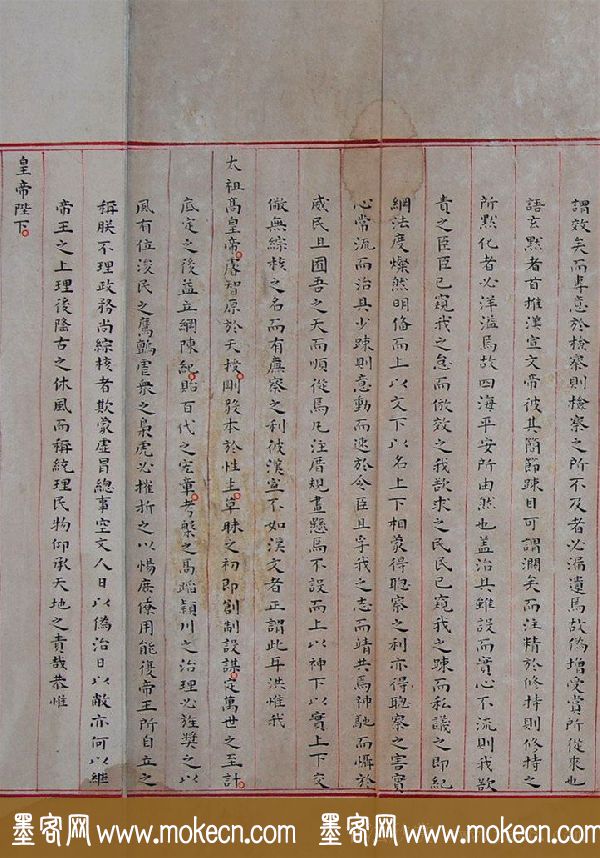 謂效矣而專意於檢察則檢察之所不及者必漏遺焉故偽增受賞所從來也
語玄默者首推漢宣文帝彼其簡節踈目可謂濶矣而注精於修持則修持之
所默化者必洋溢焉故四海平安所由然也蓋治具雖設而實心不流則我欲
責之臣臣已窺我之怠而倣效之我欲求之民民已窺我之踈而私議之即紀
綱法度燦然明備而上以文下以名上下相蒙得聰察之利亦得聰察之害實
心常流而治具少踈則意動而速於令臣且孚我之志而靖共焉神馳而懾於
威民且囿吾之天而順從焉凡注厝規畫懸焉不設而上以神下以實上下交
儆無綜核之名而有廙察之利彼漢宣不如漢文者正謂此耳洪惟我
太祖高皇帝睿智原於天授剛毅本於性生草昧之初即創制設謀定萬世之至計
底定之後益立綱陳紀貽百代之憲章考槃之高蹈潁川之治理必旌獎之以
風有位浚民之鷹鸇虐衆之梟虎必摧折之以惕庶僚用能復帝王所自立之
稱朕不理政務尚綜核者欺蒙虛冒總事空文人日以偽治日以敝亦何以繼
帝王之上理後隆古之休風而稱統理民物仰承天地之責哉恭惟
皇帝陛下
墨客网 www.mokecn.com 墨客网 www.mokecn.com